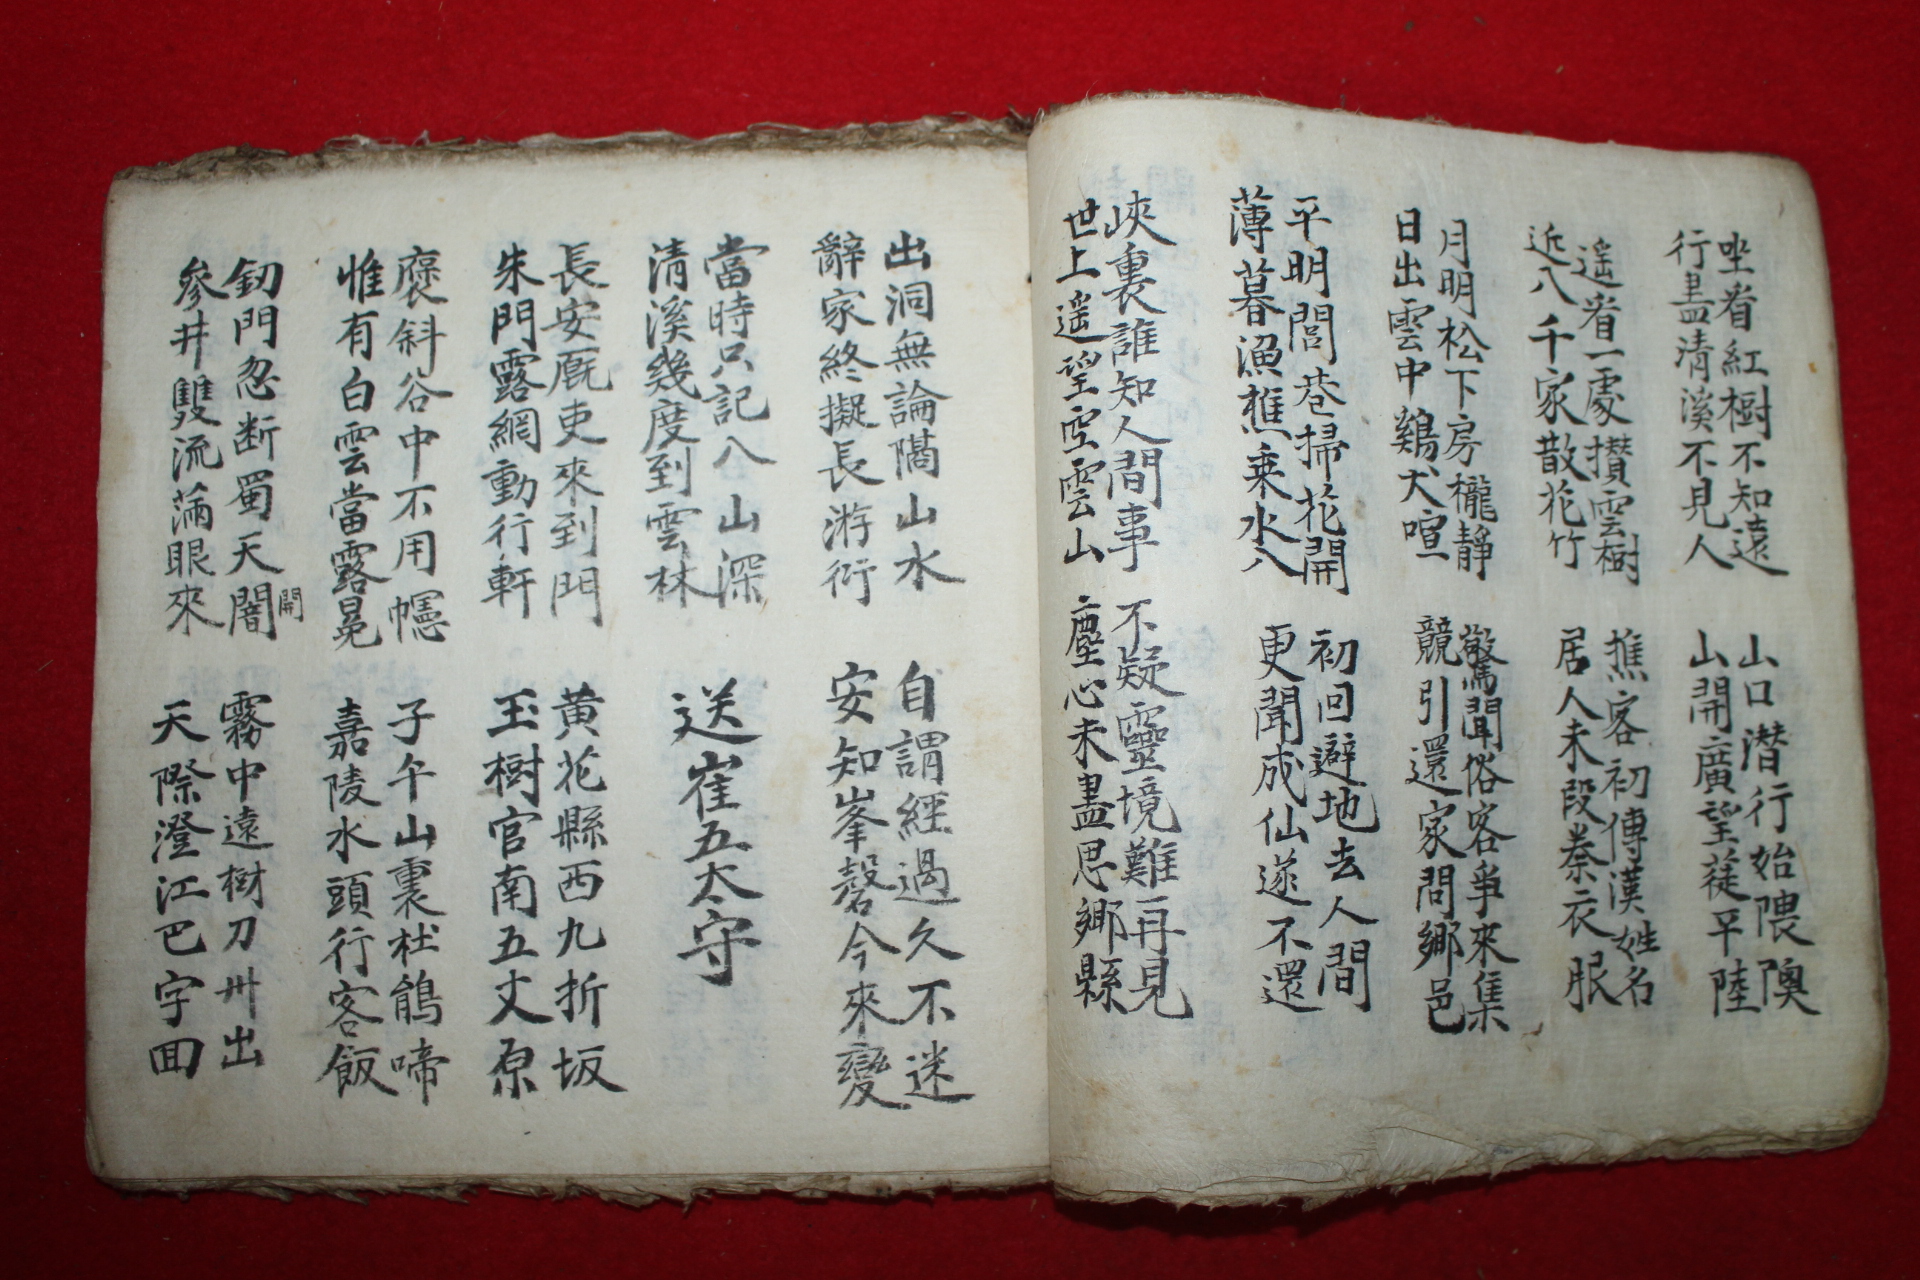 坐看紅樹不知遠
行盡清溪不見人
山口潛行始隈隩
山開廣望平陸
遥看一處攅雲樹
近八千家散花竹
樵客初傳漢姓名
居人未段蓁衣服
月明松下房櫳靜
日出雲中鷄犬喧
驚聞俗客爭來集
競引還家問鄉邑
平明閭巷掃花開
薄暮漁樵乗水八
初回避地去人間
更聞成仙遂不還
峽裏誰知人間事
世上遥望空雲山
不疑靈境難再見
塵心未盡思鄉縣
出洞無論隔山水
辭家終擬長游衍
自謂經過久不迷
安知峯磬今來變
當時只記八山深
清溪幾度到雲林
送崔五太守
長安厩吏來到門
朱門露網動行軒
黄花縣西九折坂
玉樹官南五丈原
褒斜谷中不用幰
惟有白雲當露冕
子午山裏杜鵑啼
嘉陵水頭行客飯
釼門忽断蜀天闇
開
參井雙流滿眼來
霧中遠樹刀州出
天際澄江巴字回